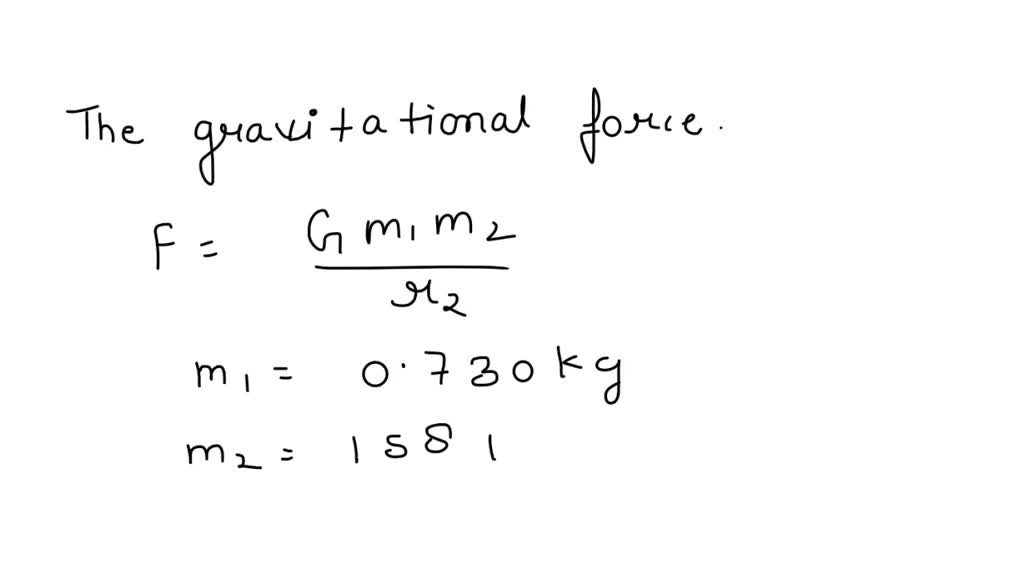 The gravitational force.
F = G m1 m2
r2
m1 = 0.730 kg
m2 = 1581